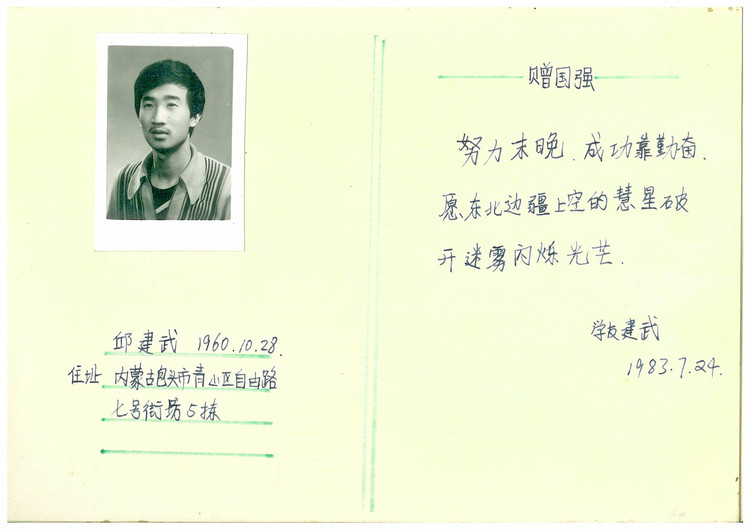 邱建武 1960.10.28.
住址 内蒙古包头市青山区自由路
七号街坊5栋
赠国强
努力未晚.成功靠勤奋.
愿东北边疆上空的慧星破
开迷雾闪烁光芒.
学友建武
1983.7.24.